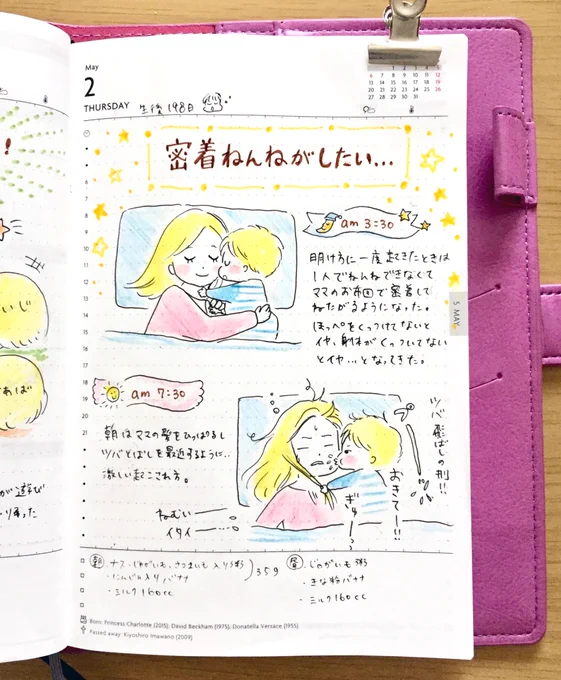 May
2
THURSDAY 生後198日
密着ねんねがしたい...
am 3:30
明け方に一度起きたときは
1人でねんねできなくて
ママのお布団で密着して
ねたがるようになった。
ほっぺをくっつけてないと
イヤ、身体がくっついてない
とイヤ...となってきた。
5 MAY
am 7:30
朝はママの髪をひっぱるし
ツバとばしを最近するように..
激しい起こされ方。
ねむい
イタイ
ツバ飛ばしの刑!!
おきてー!!
ぎゅー
朝
ナス・じゃがいも、さつまいも入り粥
・にんじん入りバナナ
・ミルク160cc
359
昼
・じゃがいも粥
・きな粉バナナ
・ミルク160cc
Born: Princess Charlotte (2015), David Beckham (1975), Donatella Versace (1955)
Passed away: Kiyoshiro Imawano (2009)
いじ
あば
が遊び